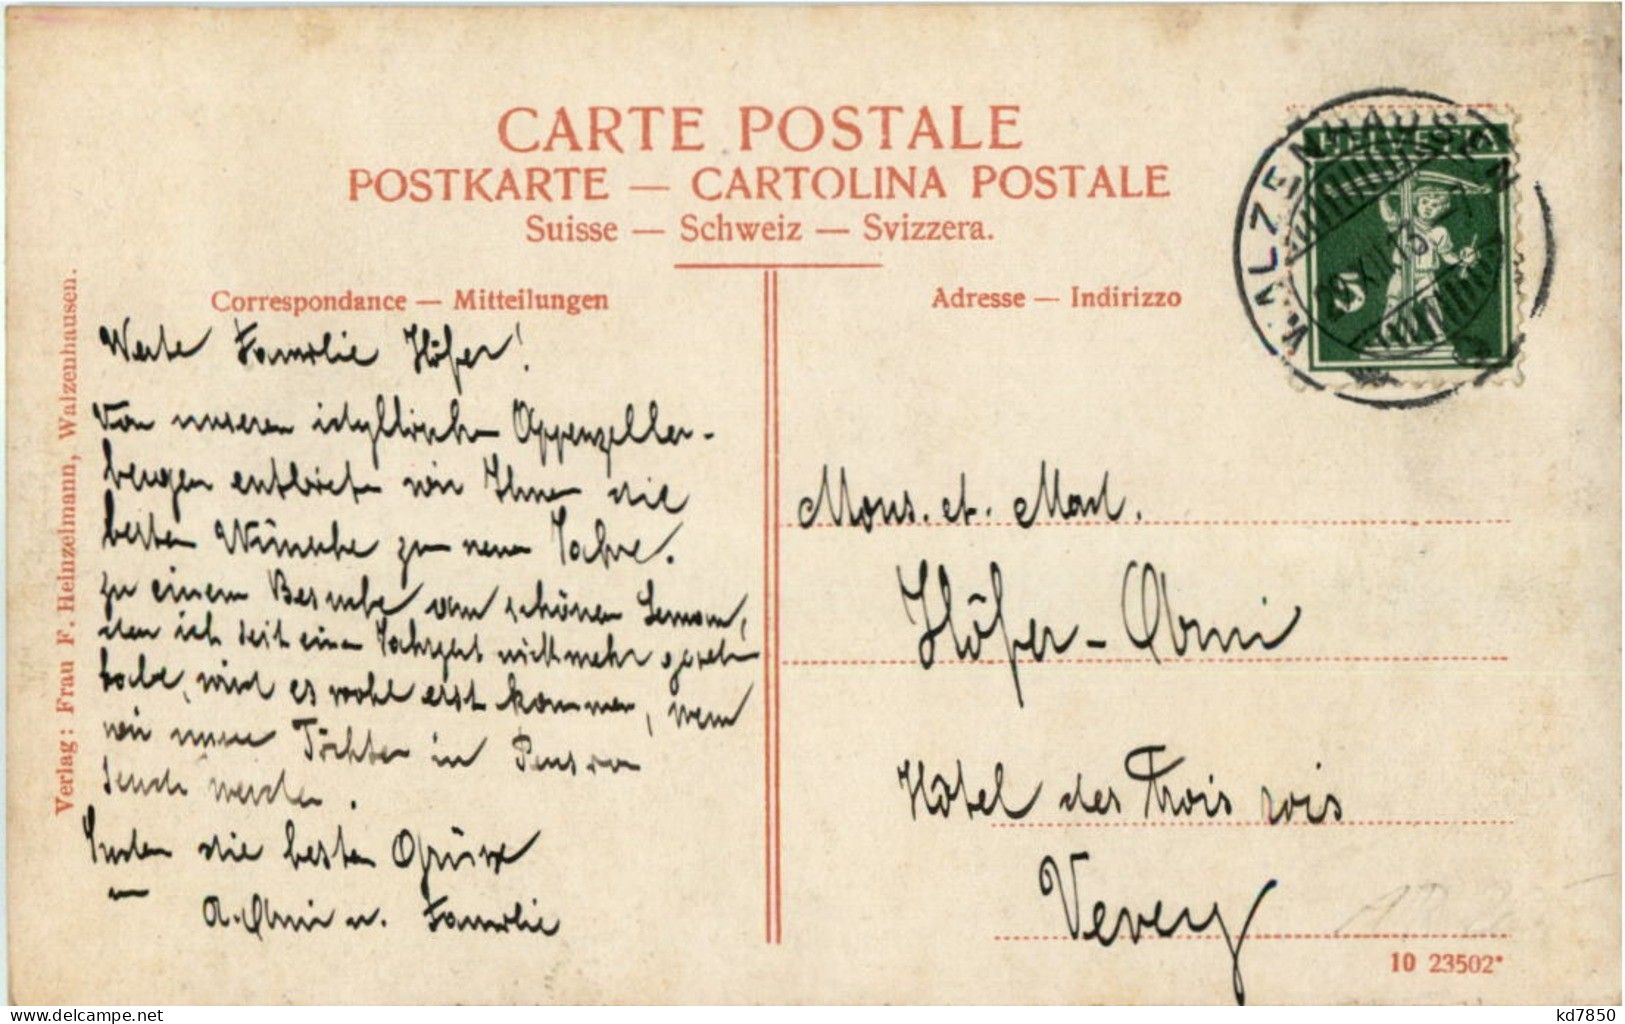 CARTE POSTALE
POSTKARTE — CARTOLINA POSTALE
Suisse — Schweiz — Svizzera.
Correspondance — Mitteilungen
Adresse — Indirizzo
Verlag: Frau F. Heinzelmann, Walzenhausen.
Werte Familie Höfer!
Von unseren idyllischen Appenzeller-
bergen entbieten wir Ihnen die
besten Wünsche zum neuen Jahre.
Zu einem Besuche am schönen Leman,
den ich seit einem Jahrzehnt nicht mehr gesehen
habe, wird es wohl erst kommen, wenn
wir unsere Töchter in Pension
senden werden.
Ihnen die besten Grüsse
A. Abmi u. Familie
Mons. et. Mad.
Höfer-Abmi
Hôtel des Trois rois
Vevey
WALZENHAUSEN
29.XII.13.-7
HELVETIA
5
10 23502*
kd7850